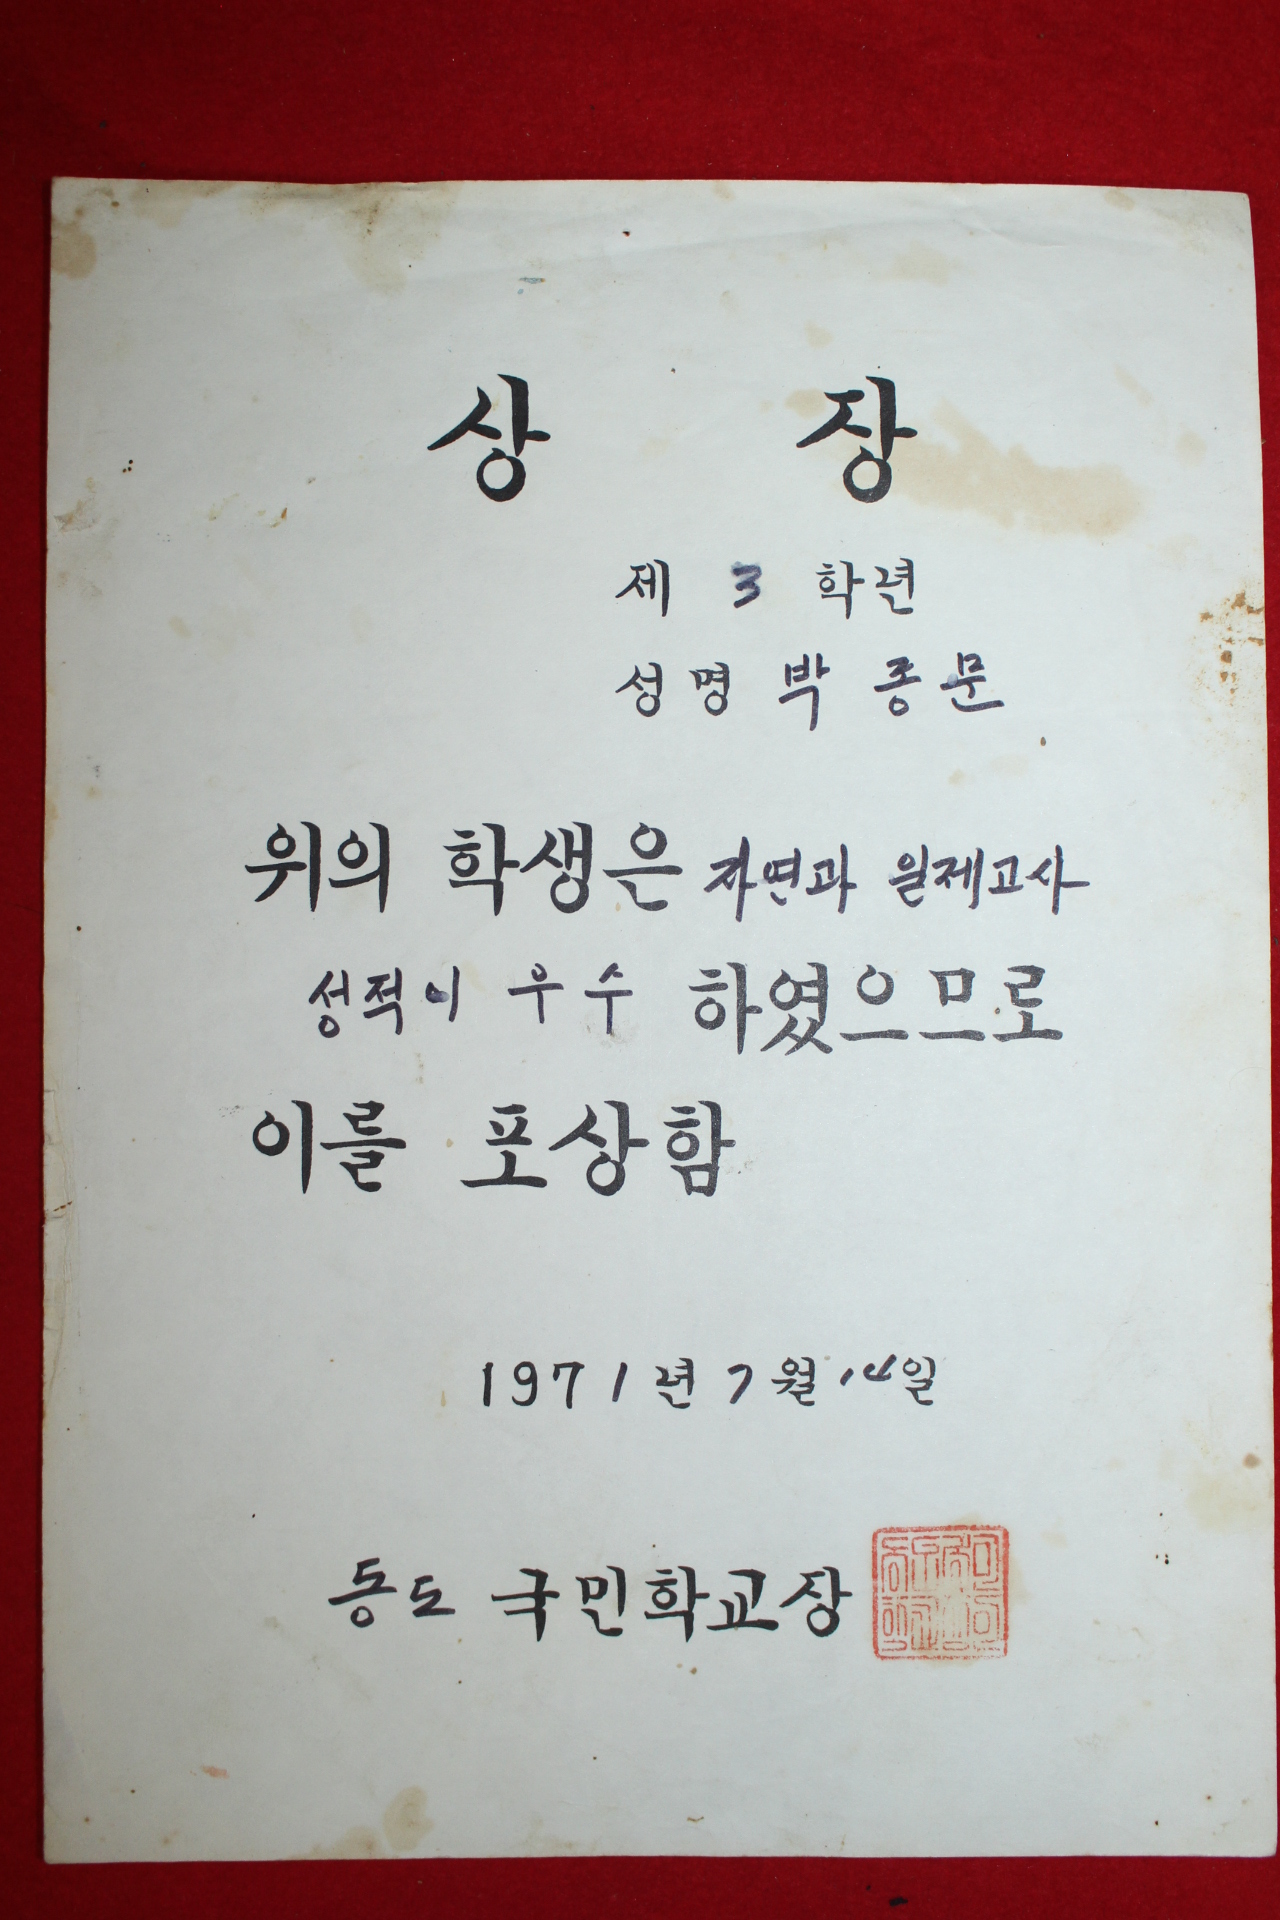 상 장
제 3 학년
성명 박 종 문
위의 학생은 자연과 일제고사
성적이 우수 하였으므로
이를 포상함
1971년 7월 14일
동도 국민학교장